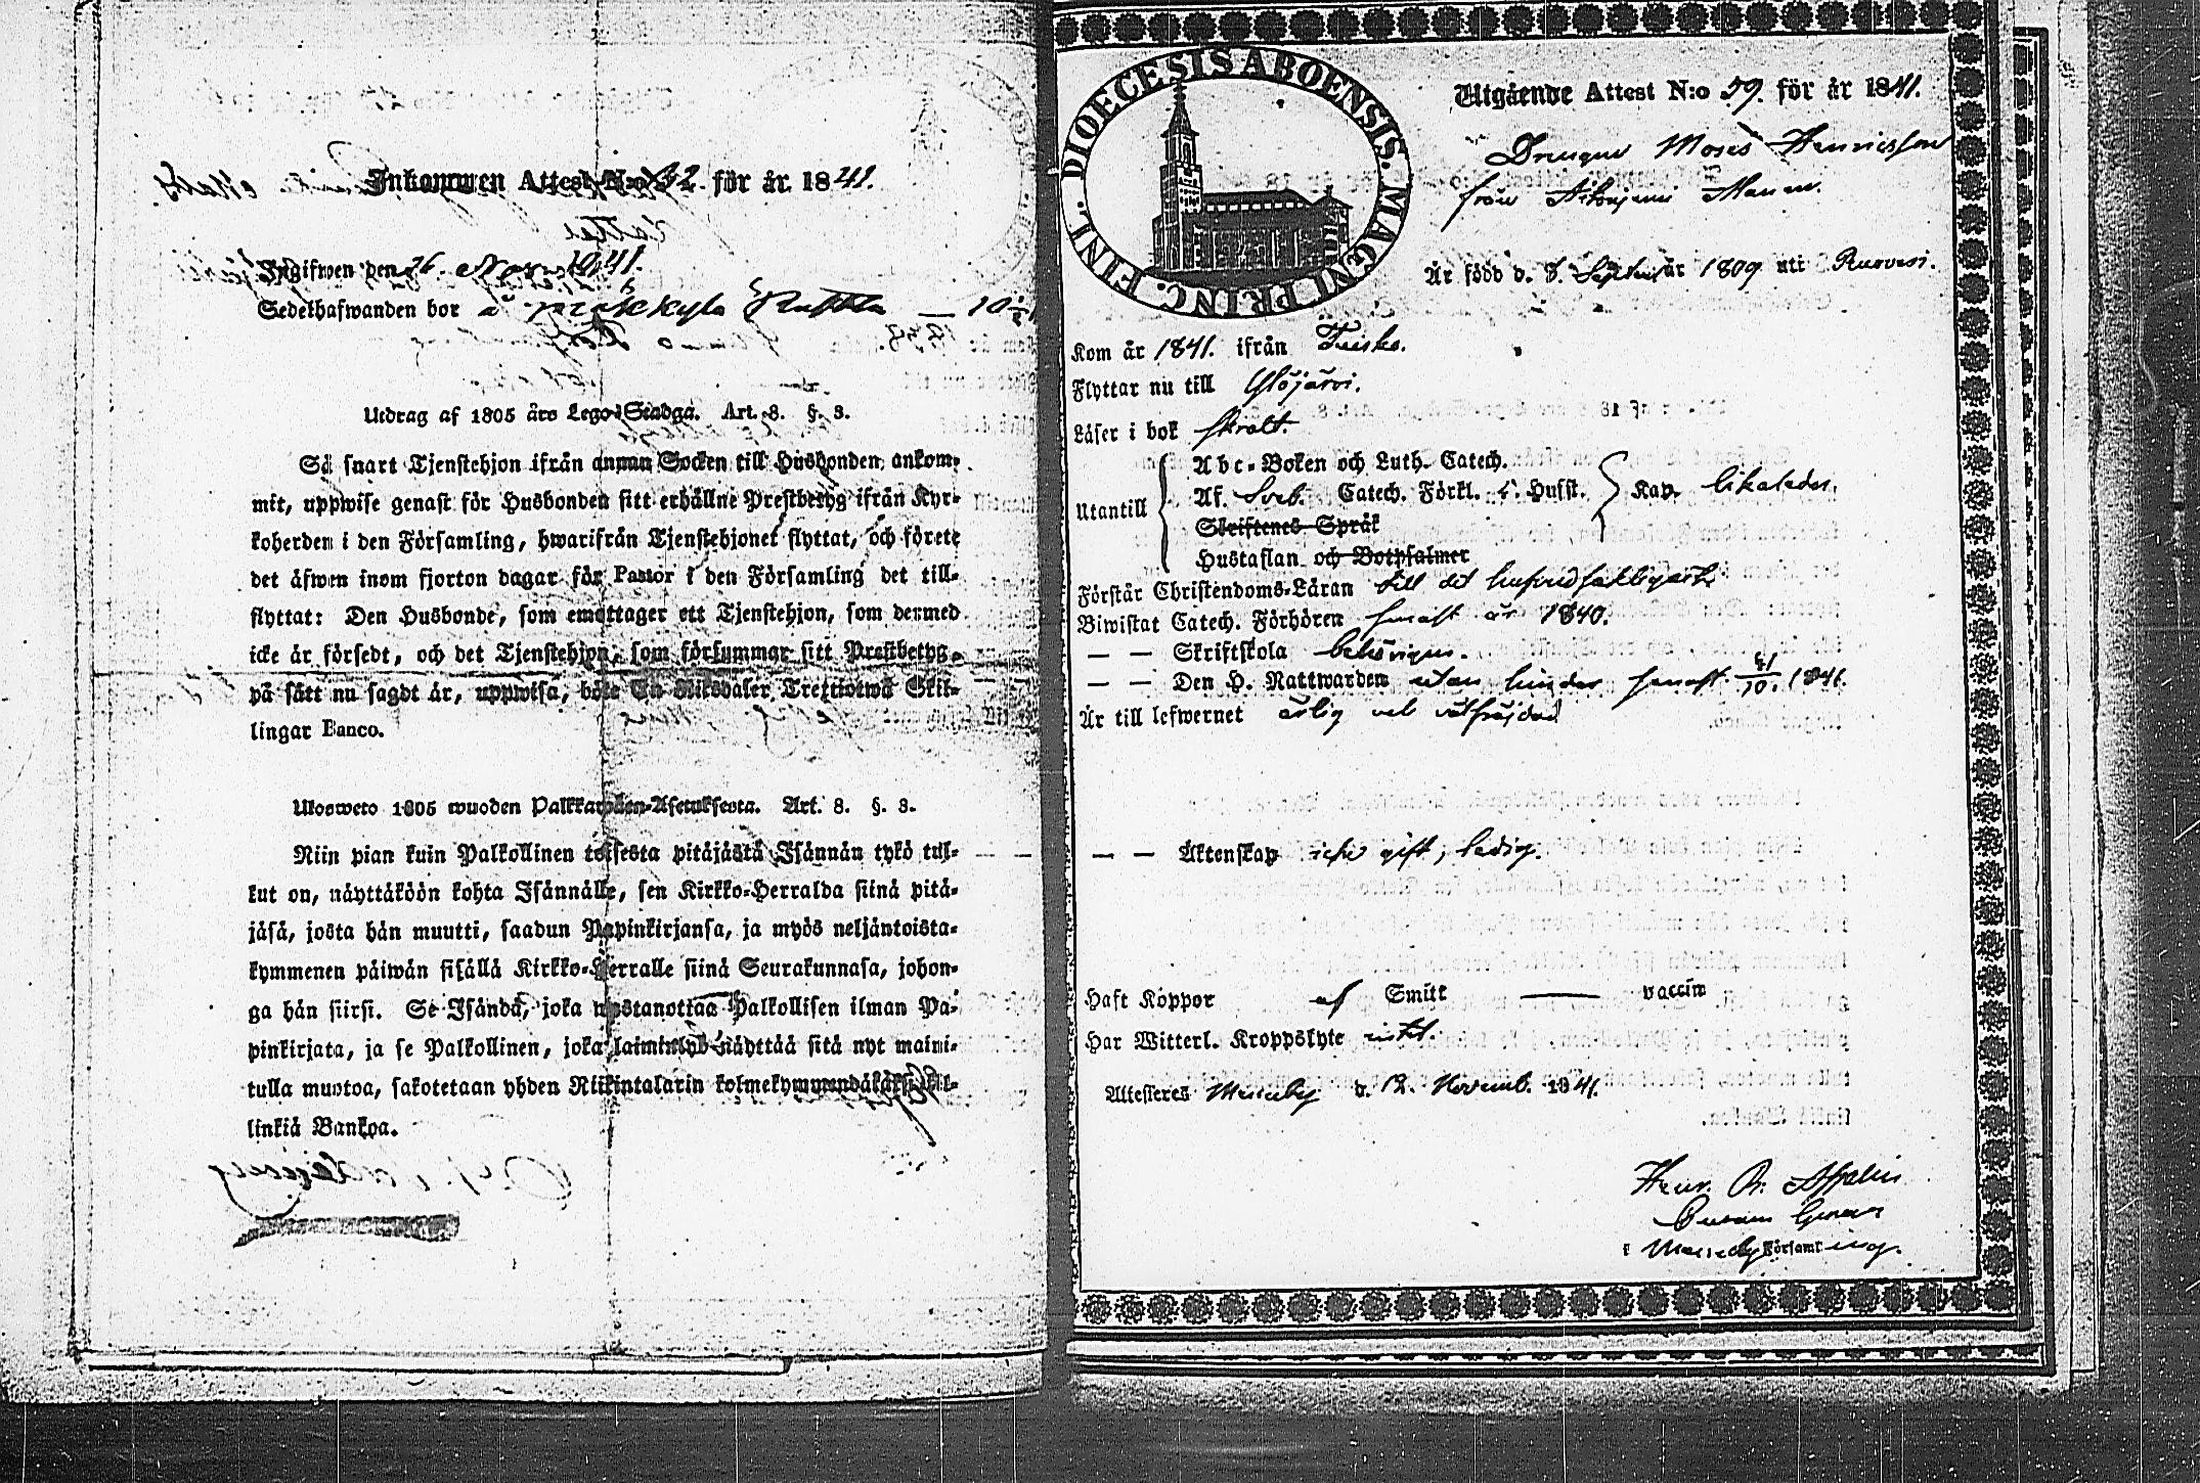 Inkommen Attest N:o 32. för år 1841.
Ingifwen den 26. Nov. 1841.
Sedelhafwanden bor å
Utdrag af 1805 års Lego-Stadga. Art. 8. §. 3.
Så snart Tjenstehjon ifrån annan Socken till Husbonden ankom-
mit, uppwise genast för Husbonden sitt erhållne Prestbetyg ifrån Kyr-
koherden i den Församling, hwarifrån Tjenstehjonet flyttat, och förete
det äfwen inom fjorton dagar för Pastor i den Församling det till-
flyttat: Den Husbonde, som emottager ett Tjenstehjon, som dermed
icke är försedt, och det Tjenstehjon, som försummar sitt Prestbetyg,
på sätt nu sagdt är, uppwisa, böte En Riksdaler Trettiotwå Skil-
lingar Banco.
Ulosweto 1805 wuoden Palkkawäen-Asetuksesta. Art. 8. §. 3.
Niin pian kuin Palkollinen toisesta pitäjästä Isännän tykö tul-
kut on, näyttäköön kohta Isännälle, sen Kirkko-Herralda siinä pitä-
jäsä, josta hän muutti, saadun Papinkirjansa, ja myös neljäntoista-
kymmenen päiwän sisällä Kirkko-Herralle siinä Seurakunnasa, johon-
ga hän siirsi. Se Isändä, joka wastanottaa Palkollisen ilman Pa-
pinkirjata, ja se Palkollinen, joka laiminlyö näyttää sitä nyt maini-
tulla muotoa, sakotetaan yhden Riikintalarin kolmekymmendäkaksi kil-
linkiä Bankoa.
DIOECESIS ABOENSIS. MAGNI PRINC. FINL.
Utgående Attest N:o 59. för år 1841.
Drengen Moses Henricsson
från
Är född d. 8. Septem. år 1809 uti Ruovesi.
Kom år 1841. ifrån Teisko.
Flyttar nu till Ylöjärvi.
Läser i bok svalt.
Utantill
Abc-Boken och Luth. Catech.
Af. Sveb. Catech. Förkl. Hufst. Kap. likaledes.
Skriftenes Språk
Hustaflan och Botpsalmer
Förstår Christendoms-Läran till det hufvudsakligaste
Biwistat Catech. Förhören senast år 1840.
— — Skriftskola behörigen.
— — Den H. Nattwarden utan hinder senast 1841.
Är till lefwernet ärlig och välfräjdad
— — Äktenskap icke gift, ledig.
Haft Koppor af Smitt — vaccin
Har Witterl. Kroppslyte intet.
Attesteres Messuby d. 12. Novemb. 1841.
Henr. R.
i Messuby Församling.